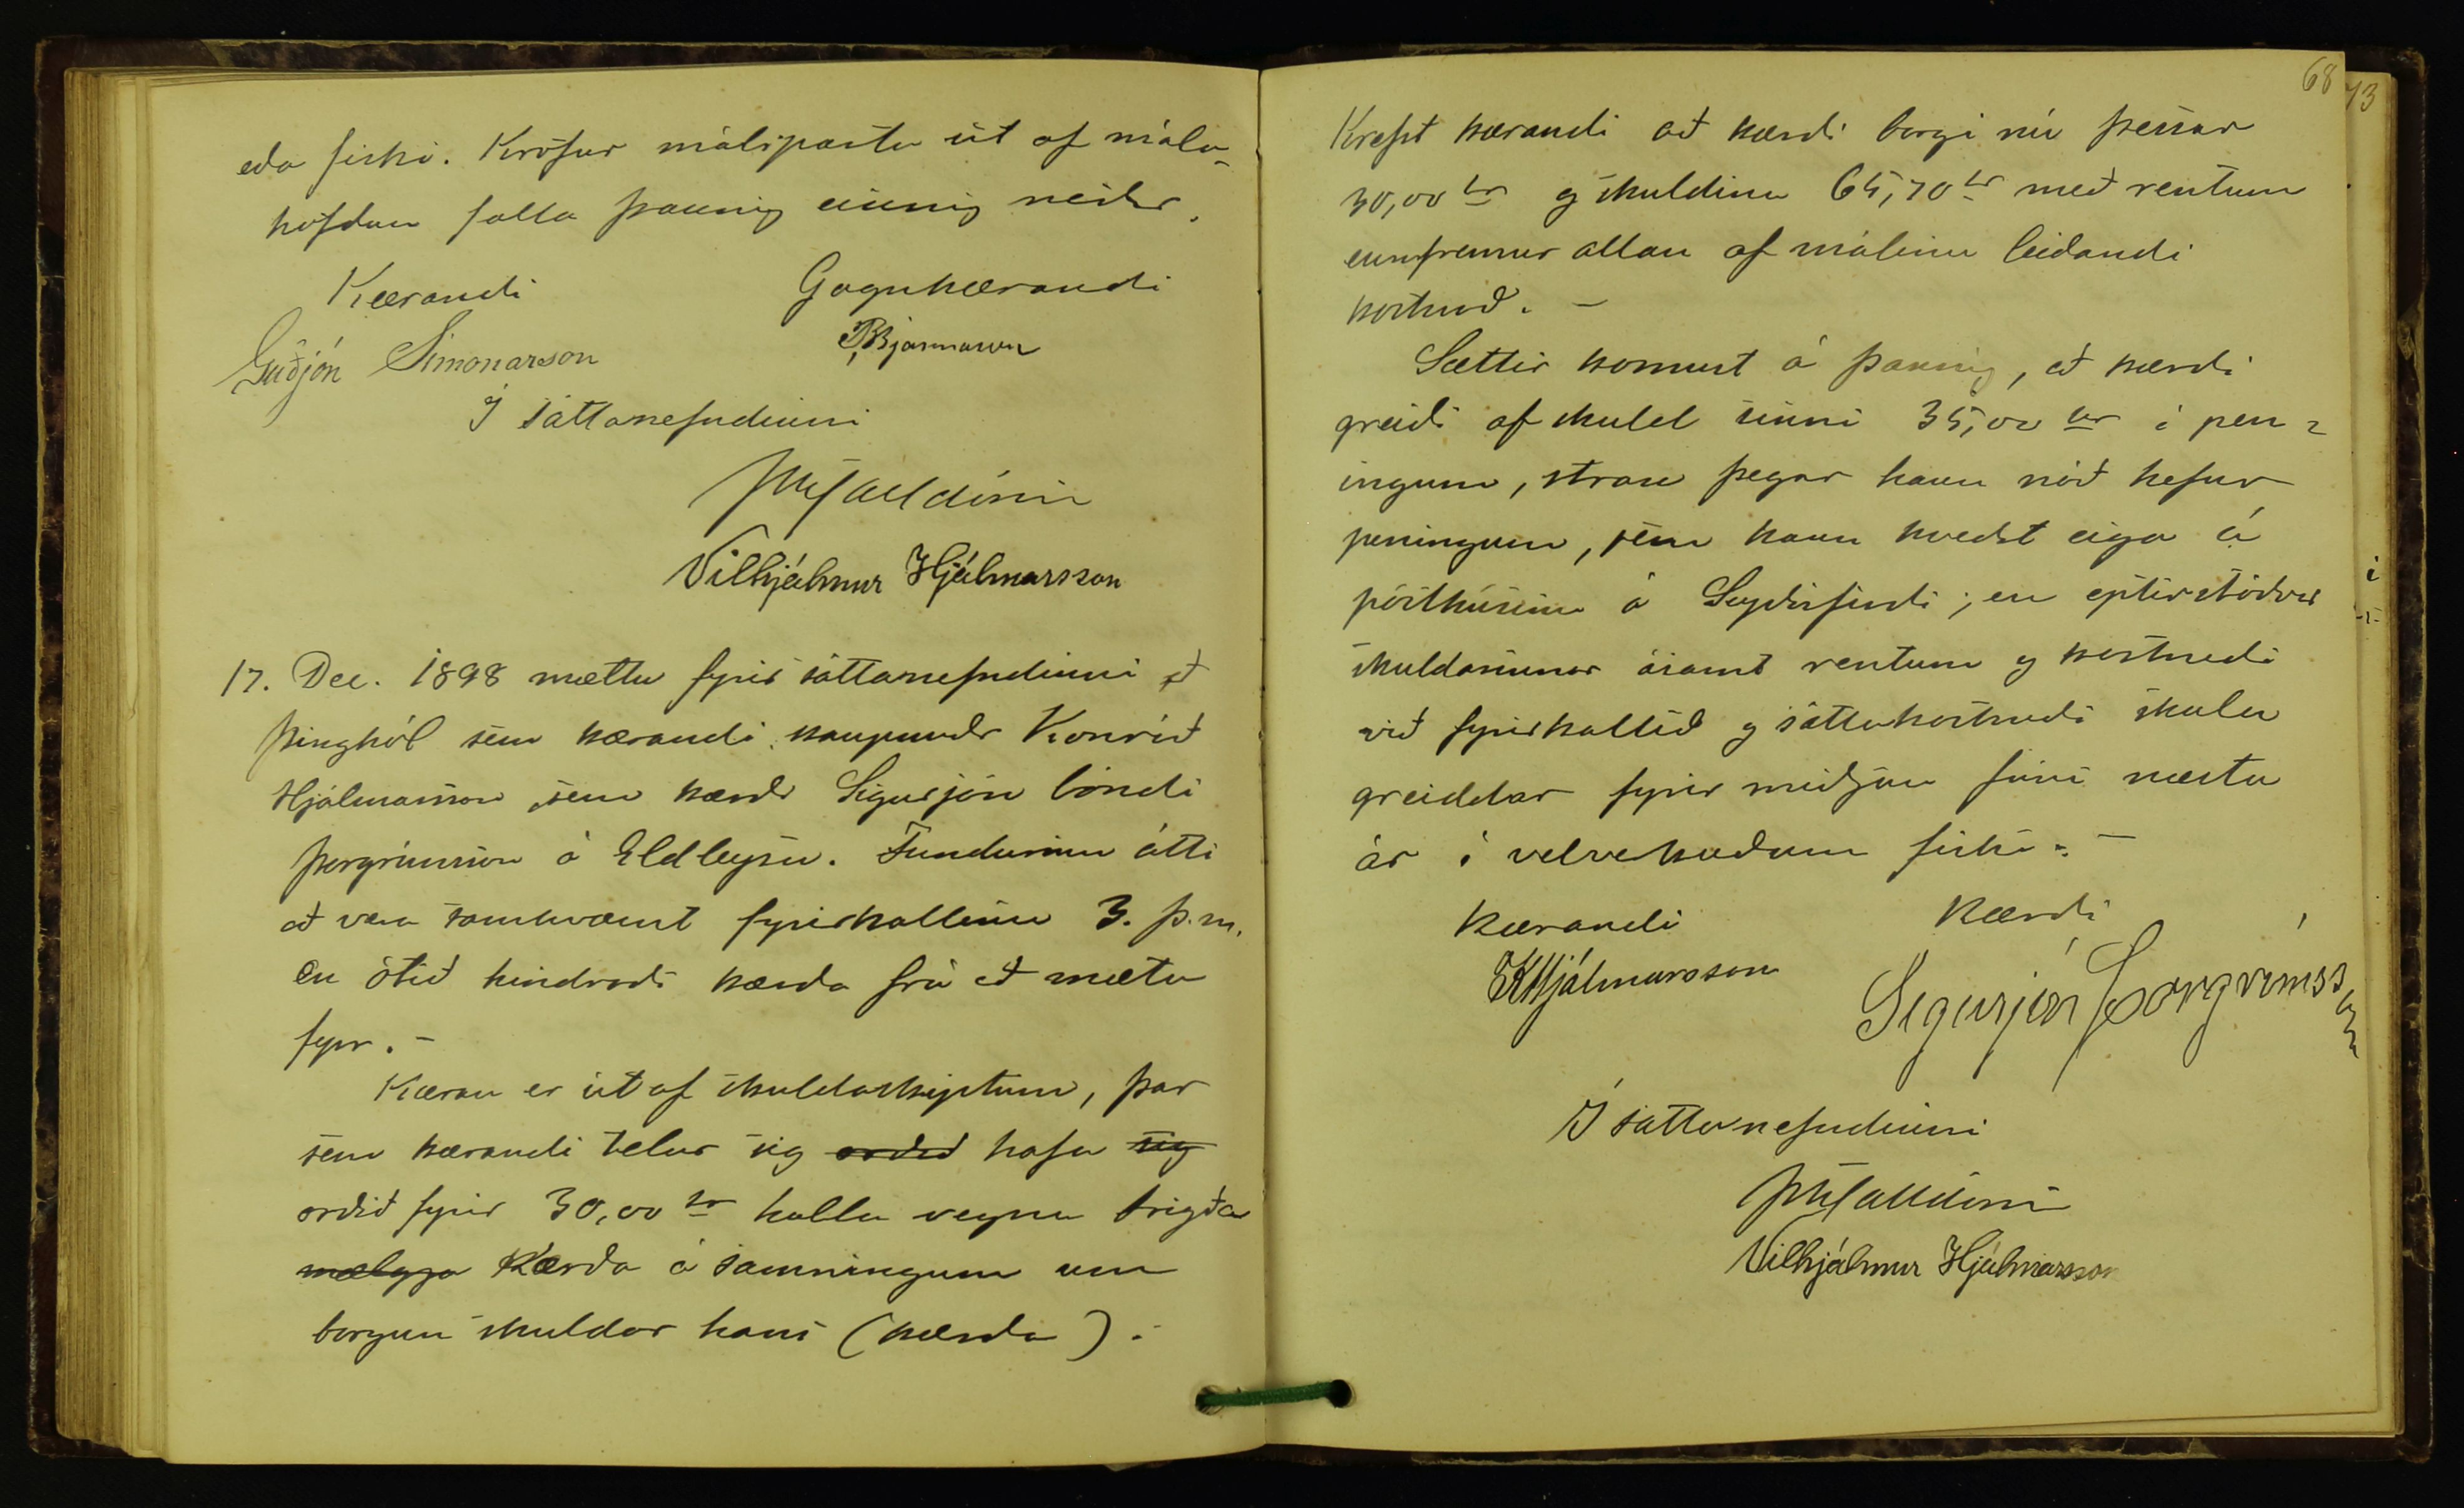 eða fiski. Kröfur málsparta út af mála-
höfdun falla þannig einnig niður.
Kærandi Gagnkærandi
Guðjón Símonarson Bjarnason
Í sáttanefndinni
Vilhjálmur Hjálmarsson
17. Dec. 1898 mættu fyrir sáttanefndinni að
Þinghól sem kærandi kaupmaðr Konráð
Hjálmarsson sem kærðr Sigurjón bóndi
Þorgrímsson á Eldleysu. Fundurinn átti
að vera samkvæmt fyrirkallinu 3. þ.m.
en ótíð hindraði kærða frá að mæta
fyr. -
Kæran er út af skuldaskiptum, þar
sem kærandi telur sig orðið hafa sig
orðið fyrir 30,00 kr halla vegna brigða
Kærða á samningum um
borgun skuldar hans (kærða).
68
73
Krefst kærandi að kærdi borgi nú þessar
30,00 kr og skuldina 65,70 kr með rentum
ennfremur allan af málinu leiðandi
kostnað. -
Sættir komust á þannig, að kærdi
greiði af skuld sinni 35,00 kr í pen-
ingum, strax þegar hann náð hefur
peningum, sem hann kveðst eiga á
pósthúsinu á Seyðisfirði; en eptirstöðvar
skuldarinnar ásamt rentum og kostnaði
við fyrirkallið og sáttakostnaði skulu
greiddar fyrir miðjan júní næsta
ár í velverkuðum fiski. -
Kærandi Kærdi
KHjálmarsson Sigurjón Þorgrímsson
Í sáttanefndinni
Vilhjálmur Hjálmarsson